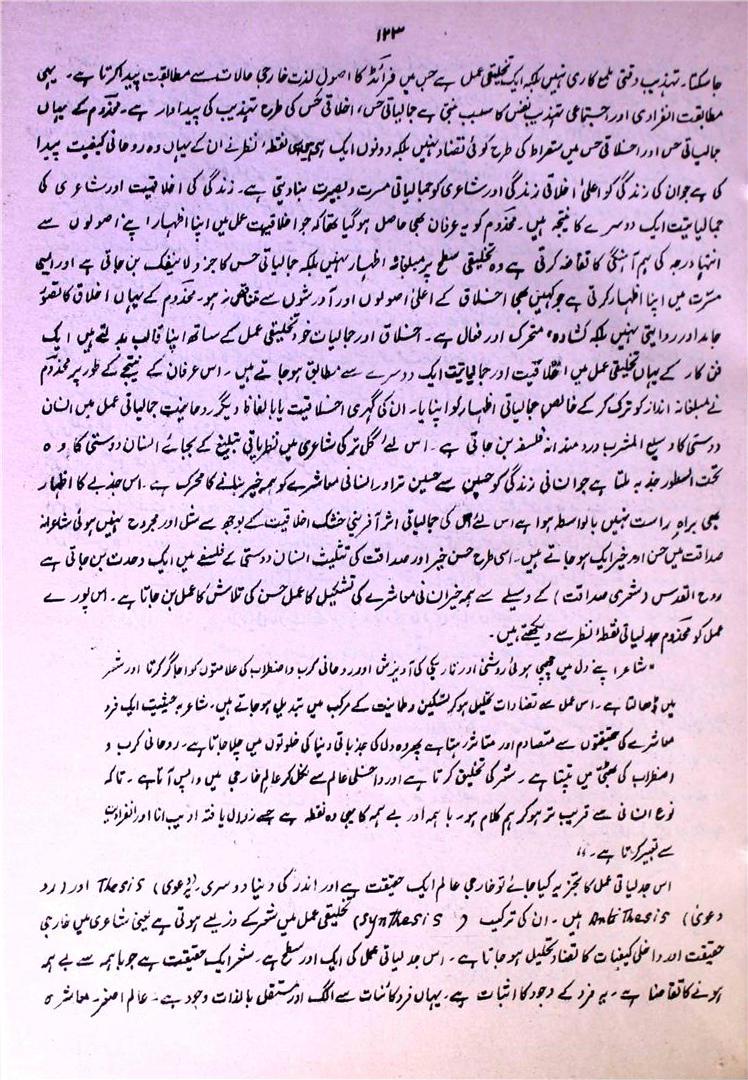 ۱۲۳
جاسکتا۔ تہذیب وقتی ملمع کاری نہیں بلکہ ایک تخلیقی عمل ہے جس میں فرائڈ کا اصول لذت خارجی حالات سے مطابقت پیدا کرتا ہے۔ یہی
مطابقت انفرادی اور اجتماعی تہذیب نفس کا سبب بنتی ہے جمالیاتی حس، اخلاقی حس کی طرح تہذیب کی پیداوار ہے۔ مخدوم کے یہاں
جمالیاتی حس اور اخلاقی حس میں سقراط کی طرح کوئی تضاد نہیں بلکہ دونوں ایک ہی ہیں یہی نقطۂ نظر نے ان کے یہاں وہ روحانی کیفیت پیدا
کی ہے جو ان کی زندگی کو اعلیٰ اخلاقی زندگی اور شاعری کو جمالیاتی مسرت و بصیرت بنا دیتی ہے۔ زندگی کی اخلاقیت اور شاعری کی
جمالیاتیت ایک دوسرے کا نتیجہ ہیں۔ مخدوم کو یہ عرفان بھی حاصل ہو گیا تھا کہ جو اخلاقیت عمل میں اپنا اظہار اپنے اصولوں سے
انتہا درجہ کی ہم آہنگی کا تقاضہ کرتی ہے وہ تخلیقی سطح پر مبلغانہ اظہار نہیں بلکہ جمالیاتی حس کا جزو لاینفک بن جاتی ہے اور ایسی
مسرت میں اپنا اظہار کرتی ہے جو کہیں بھی اخلاق کے اعلیٰ اصولوں اور آدرشوں سے متناقص نہ ہو۔ مخدوم کے یہاں اخلاق کا تصور
جامد اور روایتی نہیں بلکہ کشادہ، متحرک اور فعال ہے۔ اخلاق اور جمالیات خود تخلیقی عمل کے ساتھ اپنا قالب بدلتے ہیں ایک
فن کار کے یہاں تخلیقی عمل میں اخلاقیت اور جمالیاتیت ایک دوسرے سے مطابق ہو جاتے ہیں۔ اس عرفان کے نتیجے کے طور پر مخدوم
نے مبلغانہ انداز کو ترک کر کے خالص جمالیاتی اظہار کو اپنایا۔ ان کی گہری اخلاقیت یا بالفاظ دیگر روحانیت جمالیاتی عمل میں انسان
دوستی کا وسیع المشرب دردمندانہ فلسفہ بن جاتی ہے۔ اس لئے گل تر کی شاعری میں نظریاتی تبلیغ کے بجائے انسان دوستی کا وہ
تحت السطور جذبہ ملتا ہے جو انسانی زندگی کو حسین سے حسین تر اور انسانی معاشرے کو ہمہ خیر بنانے کا محرک ہے۔ اس جذبے کا اظہار
بھی براہِ راست نہیں بالواسطہ ہوا ہے اس لئے اس کی جمالیاتی اثر آفرینی خشک اخلاقیت کے بوجھ سے شل اور مجروح نہیں ہوئی شاعرانہ
صداقت میں حسن اور خیر ایک ہو جاتے ہیں۔ اسی طرح حسن خیر اور صداقت کی تثلیث انسان دوستی کے فلسفے میں ایک وحدت بن جاتی ہے
روح القدس (شعری صداقت) کے وسیلے سے ہمہ خیر انسانی معاشرے کی تشکیل کا عمل حسن کی تلاش کا عمل بن جاتا ہے۔ اس پورے
عمل کو مخدوم جدلیاتی نقطۂ نظر سے دیکھتے ہیں۔
"شاعر اپنے دل میں چھپی ہوئی روشنی اور تاریکی کی آویزش اور روحانی کرب و اضطراب کی علامتوں کو اجاگر کرتا اور شعر
میں ڈھالتا ہے۔ اس عمل سے تضادات تحلیل ہو کر تسکین و طمانیت کے مرکب میں تبدیل ہو جاتے ہیں۔ شاعر بہ حیثیت ایک فرد
معاشرے کی حقیقتوں سے متصادم اور متاثر رہتا ہے پھر وہ دل کی جذباتی دنیا کی خلوتوں میں چلا جاتا ہے۔ روحانی کرب و
اضطراب کی بھٹی میں تپتا ہے۔ شعر کی تخلیق کرتا ہے اور داخلی عالم سے نکل کر عالم خارجی میں واپس آتا ہے۔ تاکہ
نوع انسانی سے قریب تر ہو کر ہم کلام ہو۔ باہمہ اور بے ہمہ کا یہی وہ نقطہ ہے جسے زوال یافتہ ادیب انا اور انفرادیت
سے تعبیر کرتا ہے۔"
اس جدلیاتی عمل کا تجزیہ کیا جائے تو خارجی عالم ایک حقیقت ہے اور اندر کی دنیا دوسری۔ (دعویٰ) Thesis اور (رد
دعویٰ) Antithesis ہیں۔ ان کی ترکیب (Synthesis) تخلیقی عمل میں شعر کے ذریعے ہوتی ہے یعنی شاعری میں خارجی
حقیقت اور داخلی کیفیات کا تضاد تحلیل ہو جاتا ہے۔ اس جدلیاتی عمل کی ایک اور سطح ہے۔ شعر ایک حقیقت ہے جو باہمہ سے بے ہمہ
ہونے کا تقاضا ہے۔ یہ فرد کے وجود کا اثبات ہے۔ یہاں فرد کائنات سے الگ اور مستقل بالذات وجود ہے۔ عالم اصغر۔ معاشرہ